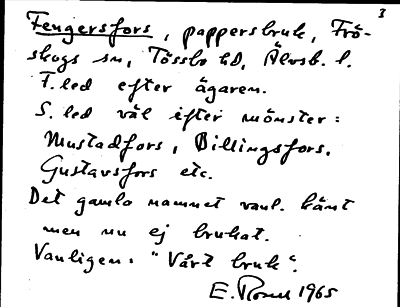 3
Fengersfors, pappersbruk, Frö-
skogs sn, Tössbo hd, Älvsb. l.
F. led efter ägaren.
S. led väl efter mönster:
Mustadfors, Billingsfors,
Gustavsfors etc.
Det gamla namnet vanl. känt
men nu ej brukat.
Vanligen: "Vårt bruk".
E. 1965